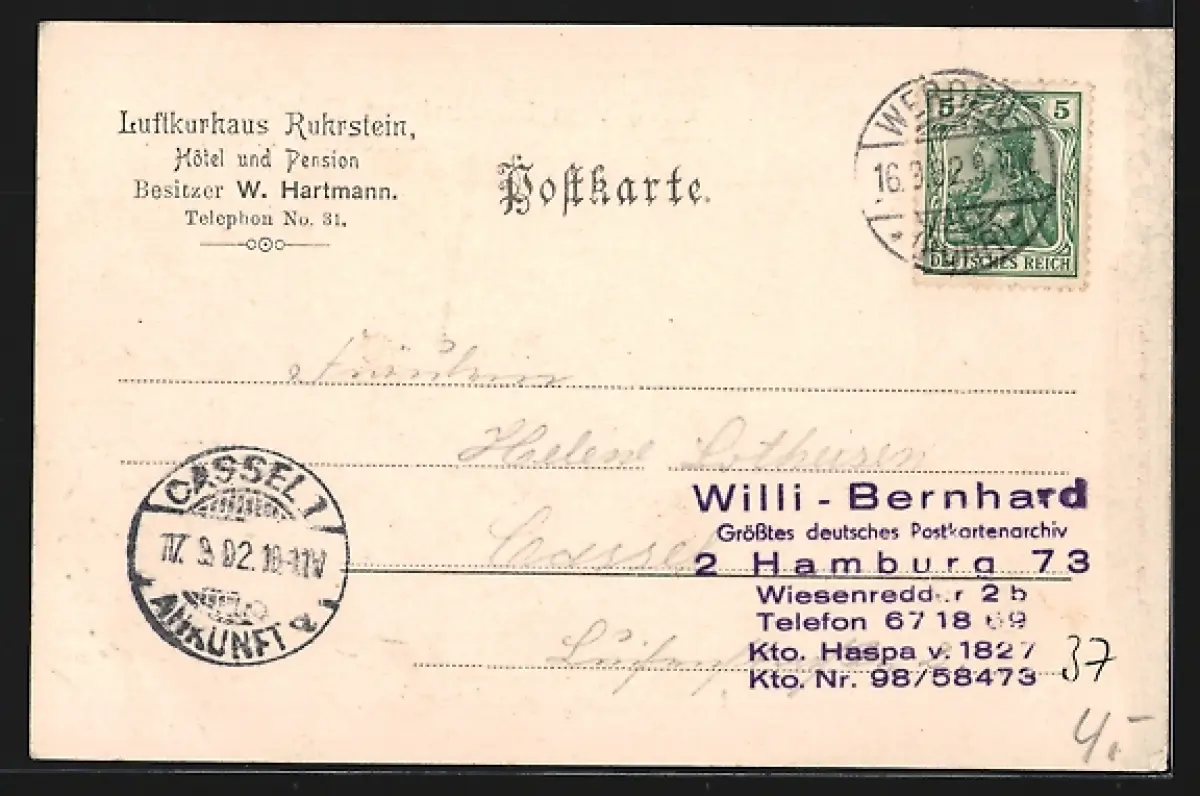 Luftkurhaus Ruhrstein,
Hôtel und Pension
Besitzer W. Hartmann.
Telephon No. 31.
Postkarte.
WERDEN
16.9.02.9
5 5
DEUTSCHES REICH
Fräulein
Helene
Cassel
CASSEL 1
17.9.02.10-11V
ANKUNFT
Willi - Bernhard
Größtes deutsches Postkartenarchiv
2 Hamburg 73
Wiesenredder 2 b
Telefon 67 18 69
Kto. Haspa v. 1827
Kto. Nr. 98/58473
37
4,-